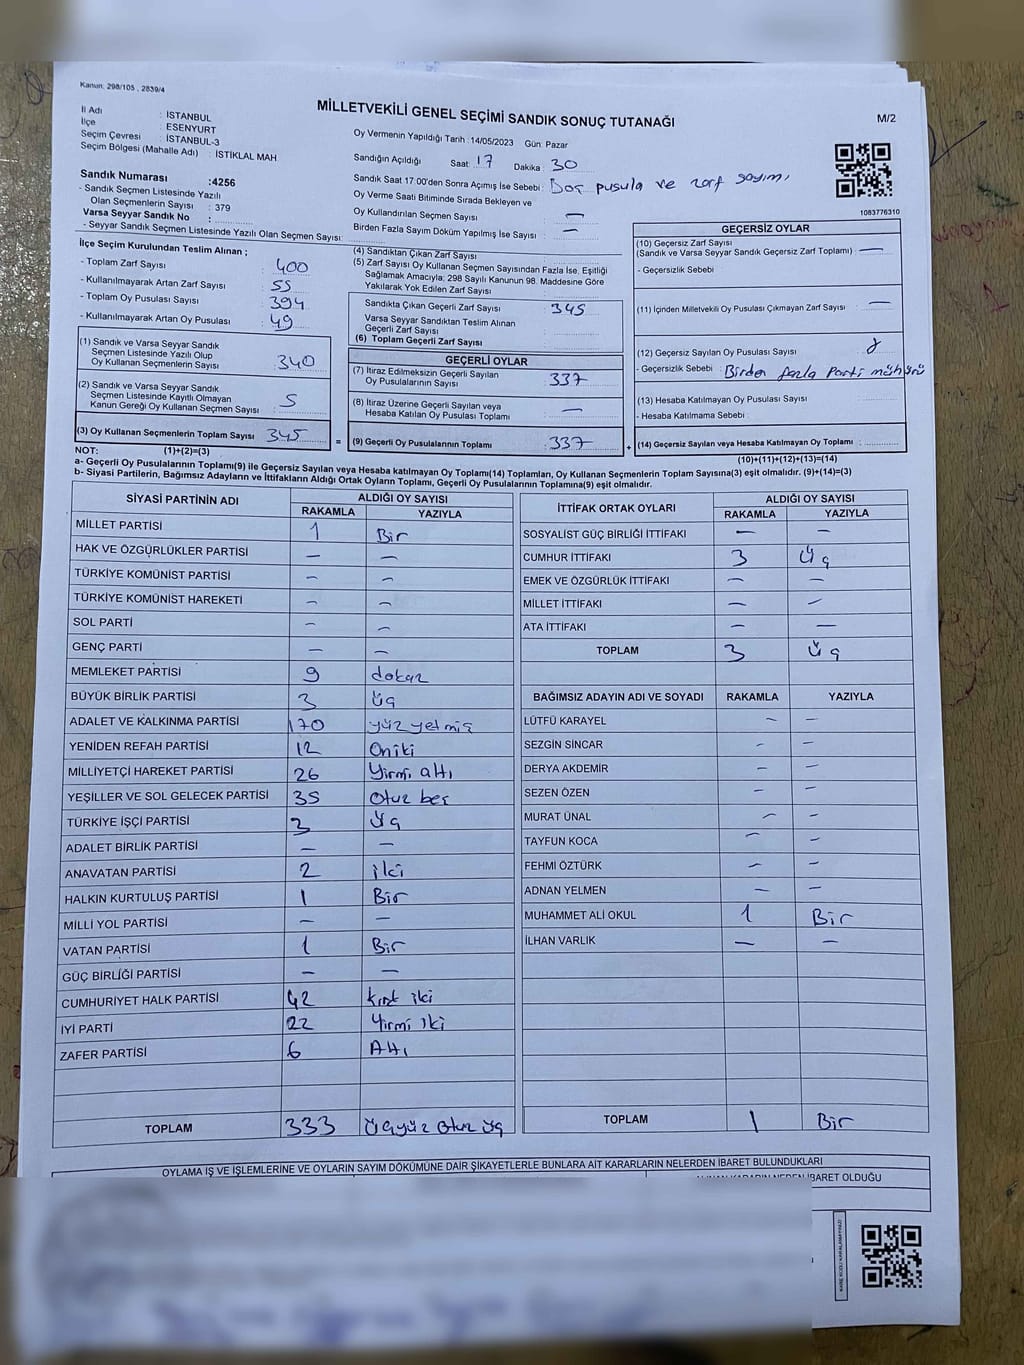 Kanun: 298/105 , 2839/4
MİLLETVEKİLİ GENEL SEÇİMİ SANDIK SONUÇ TUTANAĞI
M/2
İl Adı : İSTANBUL
İlçe : ESENYURT
Seçim Çevresi : İSTANBUL-3
Seçim Bölgesi (Mahalle Adı) : İSTİKLAL MAH
Sandık Numarası :4256
- Sandık Seçmen Listesinde Yazılı
Olan Seçmenlerin Sayısı : 379
Varsa Seyyar Sandık No :
- Seyyar Sandık Seçmen Listesinde Yazılı Olan Seçmen Sayısı:
Oy Vermenin Yapıldığı Tarih :14/05/2023 Gün: Pazar
Sandığın Açıldığı Saat: 17 Dakika: 30
Sandık Saat 17:00'den Sonra Açımış İse Sebebi : Boş pusula ve zarf sayımı
Oy Verme Saati Bitiminde Sırada Bekleyen ve
Oy Kullandırılan Seçmen Sayısı : —
Birden Fazla Sayım Döküm Yapılmış İse Sayısı : —
1083776310
İlçe Seçim Kurulundan Teslim Alınan ;
- Toplam Zarf Sayısı : 400
- Kullanılmayarak Artan Zarf Sayısı : 55
- Toplam Oy Pusulası Sayısı : 394
- Kullanılmayarak Artan Oy Pusulası : 49
(1) Sandık ve Varsa Seyyar Sandık
Seçmen Listesinde Yazılı Olup
Oy Kullanan Seçmenlerin Sayısı : 340
(2) Sandık ve Varsa Seyyar Sandık
Seçmen Listesinde Kayıtlı Olmayan
Kanun Gereği Oy Kullanan Seçmen Sayısı : 5
(3) Oy Kullanan Seçmenlerin Toplam Sayısı : 345
(4) Sandıktan Çıkan Zarf Sayısı :
(5) Zarf Sayısı Oy Kullanan Seçmen Sayısından Fazla İse, Eşitliği
Sağlamak Amacıyla; 298 Sayılı Kanunun 98. Maddesine Göre
Yakılarak Yok Edilen Zarf Sayısı :
Sandıkta Çıkan Geçerli Zarf Sayısı : 345
Varsa Seyyar Sandıktan Teslim Alınan
Geçerli Zarf Sayısı :
(6) Toplam Geçerli Zarf Sayısı :
GEÇERLİ OYLAR
(7) İtiraz Edilmeksizin Geçerli Sayılan
Oy Pusulalarının Sayısı : 337
(8) İtiraz Üzerine Geçerli Sayılan veya
Hesaba Katılan Oy Pusulası Toplamı : —
= (9) Geçerli Oy Pusulalarının Toplamı : 337
GEÇERSİZ OYLAR
(10) Geçersiz Zarf Sayısı
(Sandık ve Varsa Seyyar Sandık Geçersiz Zarf Toplamı) : —
- Geçersizlik Sebebi :
(11) İçinden Milletvekili Oy Pusulası Çıkmayan Zarf Sayısı : —
(12) Geçersiz Sayılan Oy Pusulası Sayısı : 8
- Geçersizlik Sebebi : Birden fazla Parti mühürü
(13) Hesaba Katılmayan Oy Pusulası Sayısı :
- Hesaba Katılmama Sebebi :
+ (14) Geçersiz Sayılan veya Hesaba Katılmayan Oy Toplamı :
NOT: (1)+(2)=(3)
(10)+(11)+(12)+(13)=(14)
a- Geçerli Oy Pusulalarının Toplamı(9) ile Geçersiz Sayılan veya Hesaba katılmayan Oy Toplamı(14) Toplamları, Oy Kullanan Seçmenlerin Toplam Sayısına(3) eşit olmalıdır. (9)+(14)=(3)
b- Siyasi Partilerin, Bağımsız Adayların ve İttifakların Aldığı Ortak Oyların Toplamı, Geçerli Oy Pusulalarının Toplamına(9) eşit olmalıdır.
SİYASİ PARTİNİN ADI ALDIĞI OY SAYISI
RAKAMLA YAZIYLA
MİLLET PARTİSİ 1 Bir
HAK VE ÖZGÜRLÜKLER PARTİSİ — —
TÜRKİYE KOMÜNİST PARTİSİ — —
TÜRKİYE KOMÜNİST HAREKETİ — —
SOL PARTİ — —
GENÇ PARTİ — —
MEMLEKET PARTİSİ 9 dokuz
BÜYÜK BİRLİK PARTİSİ 3 üç
ADALET VE KALKINMA PARTİSİ 170 yüz yetmiş
YENİDEN REFAH PARTİSİ 12 Oniki
MİLLİYETÇİ HAREKET PARTİSİ 26 Yirmi altı
YEŞİLLER VE SOL GELECEK PARTİSİ 35 Otuz beş
TÜRKİYE İŞÇİ PARTİSİ 3 Üç
ADALET BİRLİK PARTİSİ — —
ANAVATAN PARTİSİ 2 iki
HALKIN KURTULUŞ PARTİSİ 1 Bir
MİLLİ YOL PARTİSİ — —
VATAN PARTİSİ 1 Bir
GÜÇ BİRLİĞİ PARTİSİ — —
CUMHURİYET HALK PARTİSİ 42 kırk iki
İYİ PARTİ 22 Yirmi iki
ZAFER PARTİSİ 6 Altı
TOPLAM 333 Üçyüz otuz üç
İTTİFAK ORTAK OYLARI ALDIĞI OY SAYISI
RAKAMLA YAZIYLA
SOSYALİST GÜÇ BİRLİĞİ İTTİFAKI — —
CUMHUR İTTİFAKI 3 Üç
EMEK VE ÖZGÜRLÜK İTTİFAKI — —
MİLLET İTTİFAKI — —
ATA İTTİFAKI — —
TOPLAM 3 Üç
BAĞIMSIZ ADAYIN ADI VE SOYADI RAKAMLA YAZIYLA
LÜTFÜ KARAYEL — —
SEZGİN SİNCAR — —
DERYA AKDEMİR — —
SEZEN ÖZEN — —
MURAT ÜNAL — —
TAYFUN KOCA — —
FEHMİ ÖZTÜRK — —
ADNAN YELMEN — —
MUHAMMET ALİ OKUL 1 Bir
İLHAN VARLIK — —
TOPLAM 1 Bir
OYLAMA İŞ VE İŞLEMLERİNE VE OYLARIN SAYIM DÖKÜMÜNE DAİR ŞİKAYETLERLE BUNLARA AİT KARARLARIN NELERDEN İBARET BULUNDUKLARI
İBARET OLDUĞU